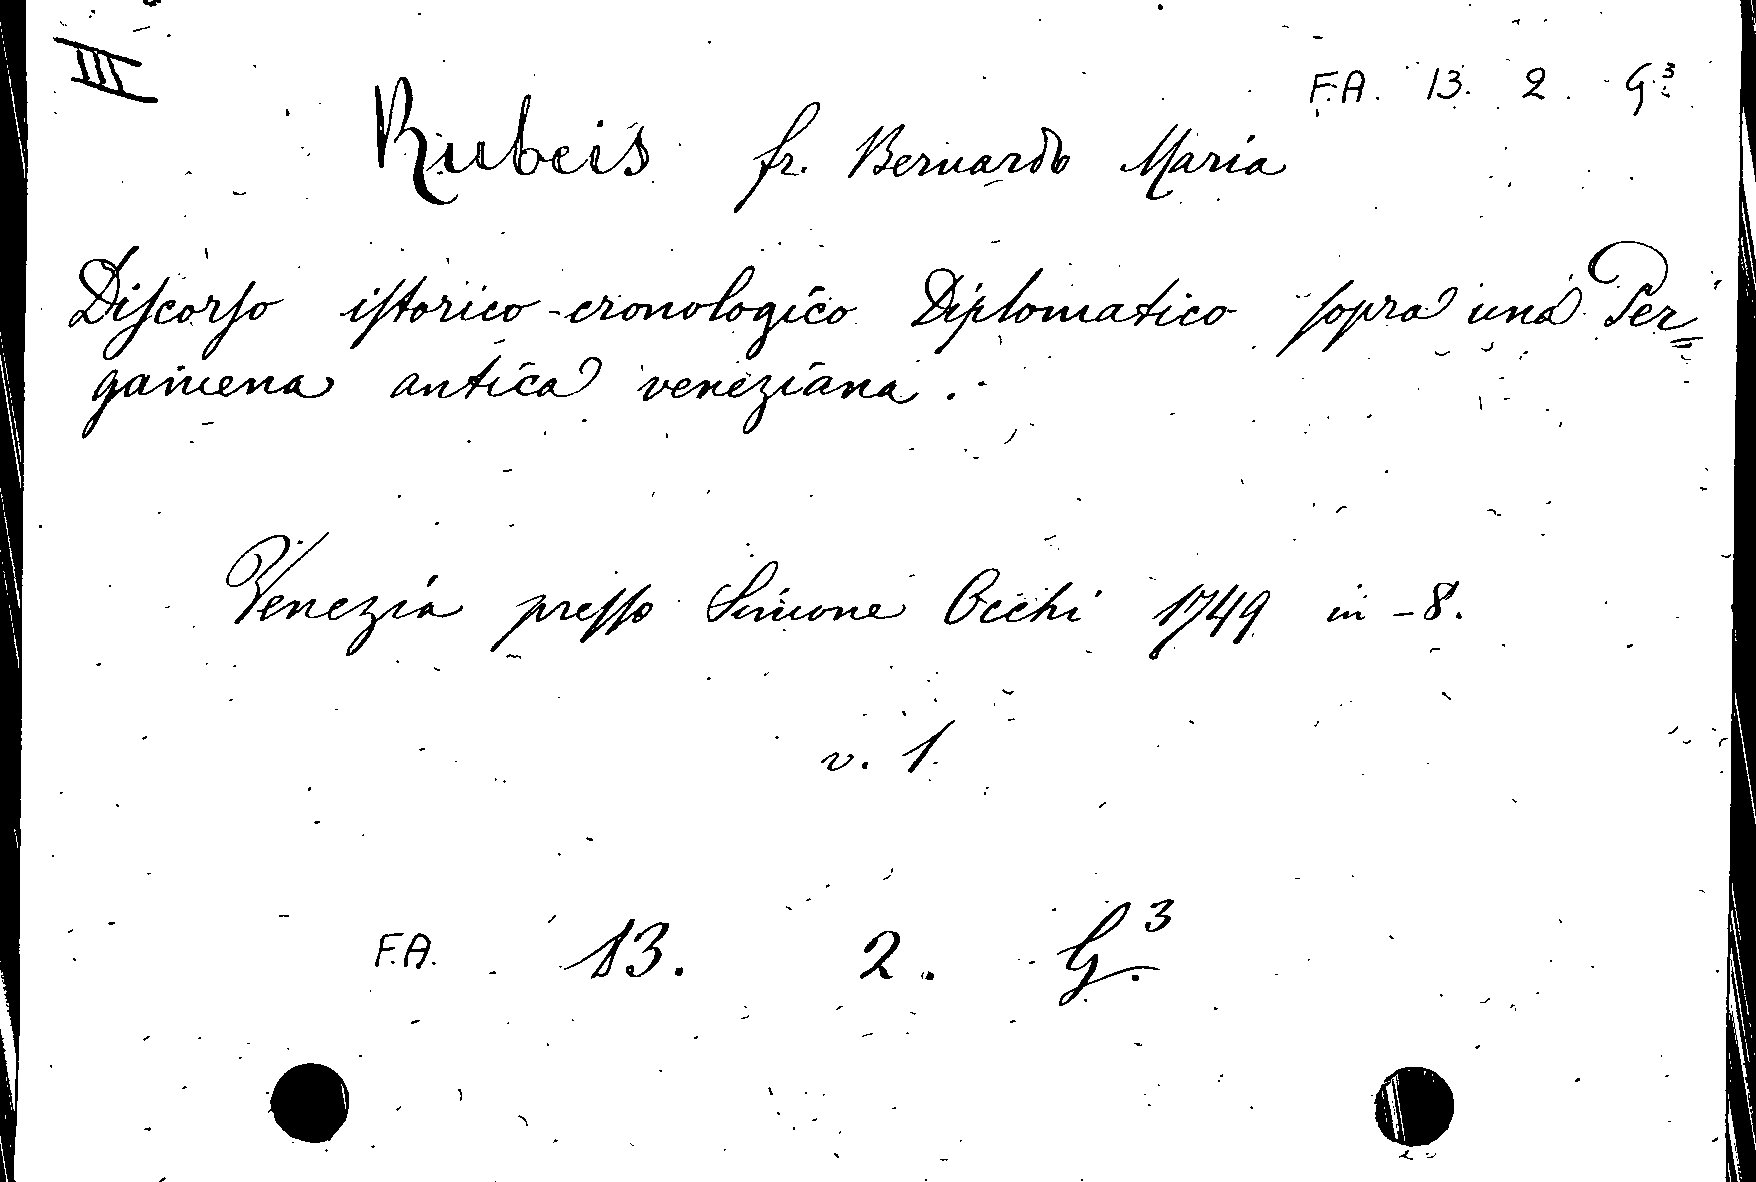 III
F.A. 13. 2. G³.
Rubeis fr. Bernardo Maria
Discorso istorico-cronologico Diplomatico sopra una Per=
gamena antica veneziana.
Venezia presso Simone Occhi 1749 in-8.
v. 1.
F.A. 13. 2. G.³